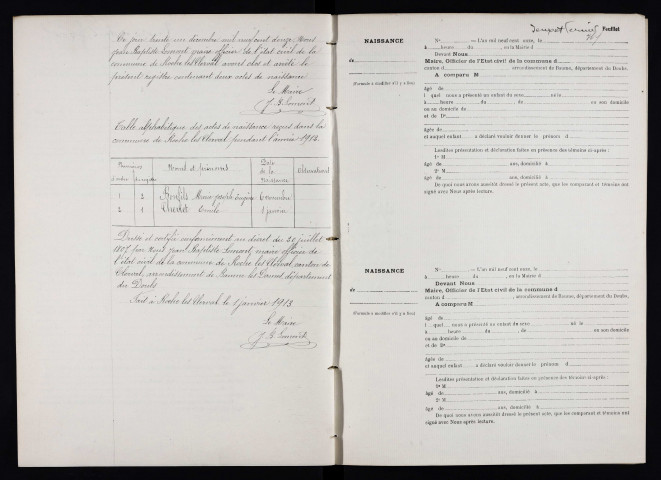 Ce jour trente un décembre mil neuf cent douze Nous
Jean Baptiste Louvot, maire officier de l'état civil de la
commune de Roche les Clerval avons clos et arrêté le
présent registre contenant deux actes de naissance
Le Maire
J B Louvot
Table alphabétique des actes de naissance reçus dans la
commune de Roche les Clerval pendant l'année 1912.
Numéros
Noms et prénoms
Date
de la
Naissance
Observations
d'ordre
1 2 Marie 6 novembre
2 1 Emile 1 janvier
Dressé et certifié conformément au décret du 20 juillet
1807 par Nous Jean Baptiste Louvot, maire officier de
l'état civil de la commune de Roche les Clerval canton de
Clerval, arrondissement de Baume les Dames département
du Doubs
Fait à Roche les Clerval le 1 janvier 1913
Le Maire
J B Louvot
Feuillet
NAISSANCE
N° — L'an mil neuf cent onze, le
à heure du , en la Mairie d
Devant Nous
de
Maire, Officier de l'Etat civil de la commune d
canton d , arrondissement de Baume, département du Doubs.
A comparu M
(Formule à modifier s'il y a lieu)
âgé de
l quel nous a présenté un enfant du sexe né le
à heure du de en son domicile
ou au domicile de
et de D°
âgée de
et auquel enfant a déclaré vouloir donner le prénom d
Lesdites présentation et déclaration faites en présence des témoins ci-après :
1° M
âgé de ans, domicilié à
2° M
âgé de ans, domicilié à
De quoi nous avons aussitôt dressé le présent acte, que les comparant et témoins ont
signé avec Nous après lecture.
NAISSANCE
N° — L'an mil neuf cent onze, le
à heure du , en la Mairie d
Devant Nous
de
Maire, Officier de l'Etat civil de la commune d
canton d , arrondissement de Baume, département du Doubs.
A comparu M
(Formule à modifier s'il y a lieu)
âgé de
l quel nous a présenté un enfant du sexe né le
à heure du , de en son domicile
ou au domicile de
et de D°
âgée de
et auquel enfant a déclaré vouloir donner le prénom d
Lesdites présentation et déclaration faites en présence des témoins ci-après :
1° M
âgé de ans, domicilié à
2° M
âgé de ans, domicilié à
De quoi nous avons aussitôt dressé le présent acte, que les comparant et témoins ont
signé avec Nous après lecture.